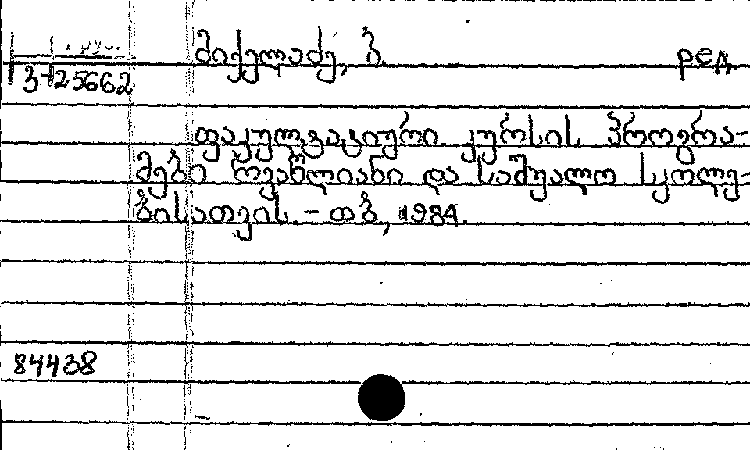 მიქელაძე, ბ. ред.
3-125662
ფაკულტატიური კურსის პროგრა-
მები რვაწლიანი და საშუალო სკოლე-
ბისათვის. - თბ., 1984.
84438